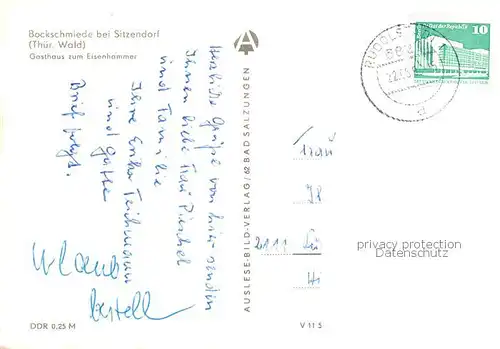 Bockschmiede bei Sitzendorf
(Thür. Wald)
Gasthaus zum Eisenhammer
Herzliche Grüße von hier senden
Ihnen liebe Frau
und Familie
Ihre Erika Teichmann
und Gatte
Brief folgt.
Urlaub
bestell
DDR 0,25 M
AUSLESE-BILD-VERLAG/62 BAD SALZUNGEN
V 11 5
10
Palast der Republik
RUDOLSTADT
Frau
2111
privacy protection
Datenschutz